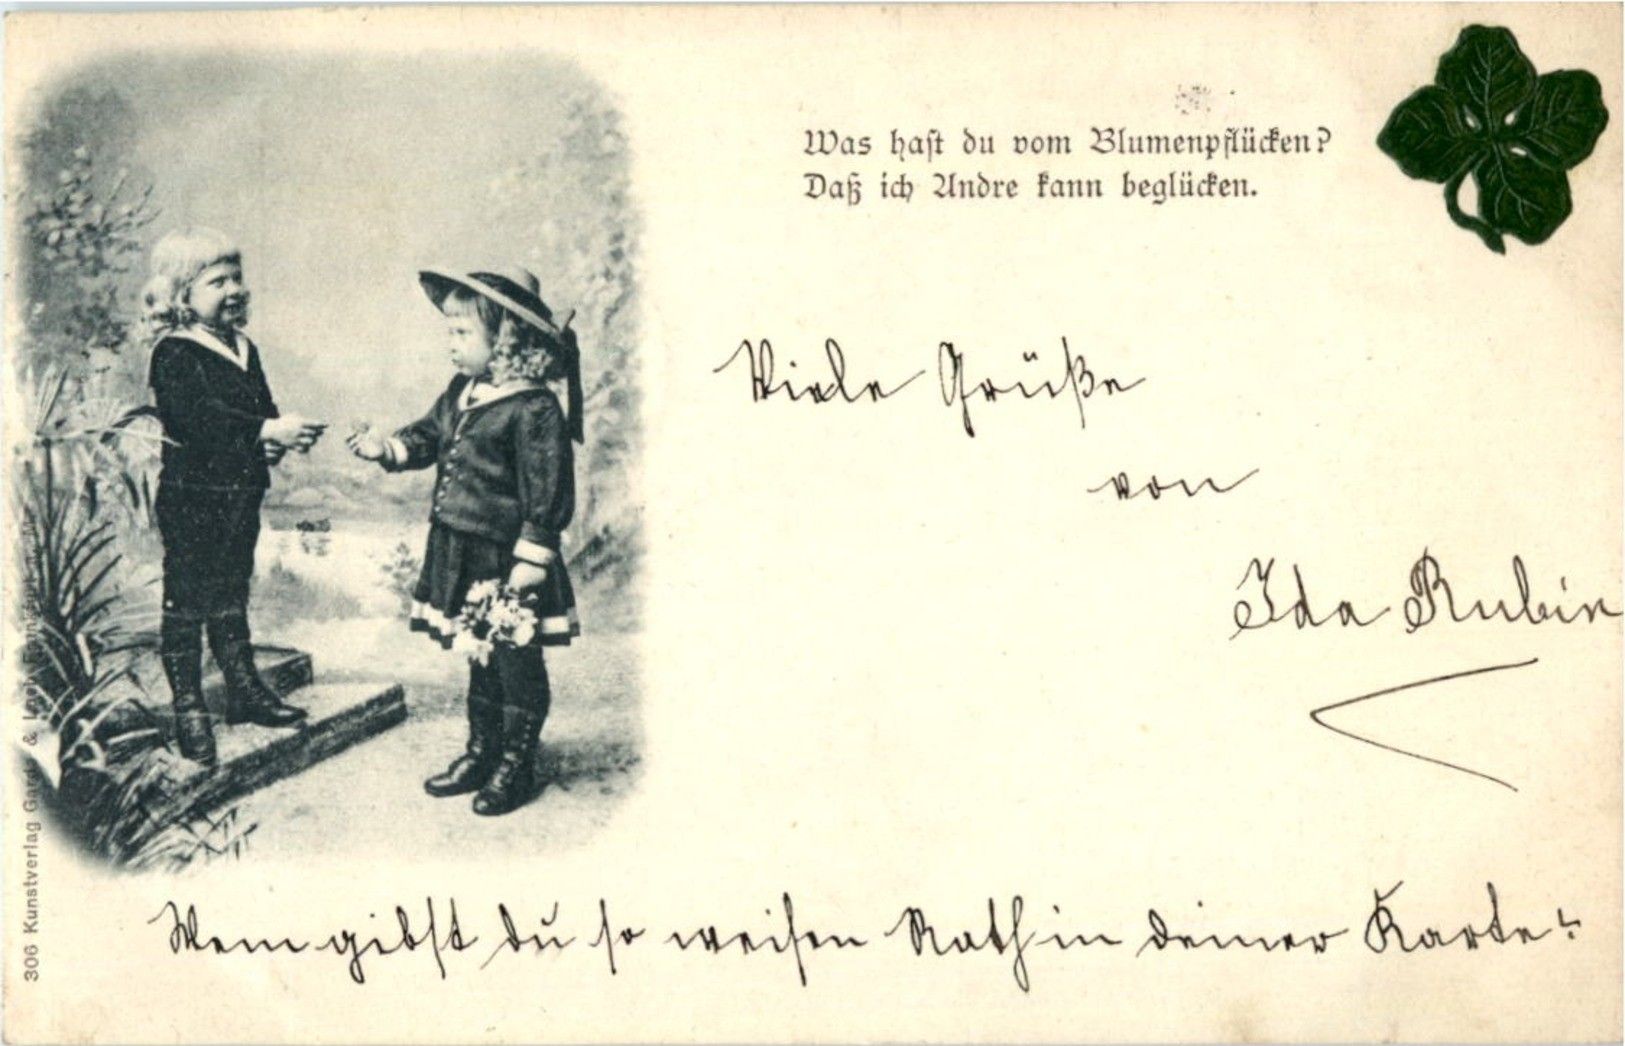 Was hast du vom Blumenpflücken?
Daß ich Andre kann beglücken.
Viele Grüße
von
Ida Rubin
Wem gibst du so weisen Rath in deiner Karte?
306 Kunstverlag